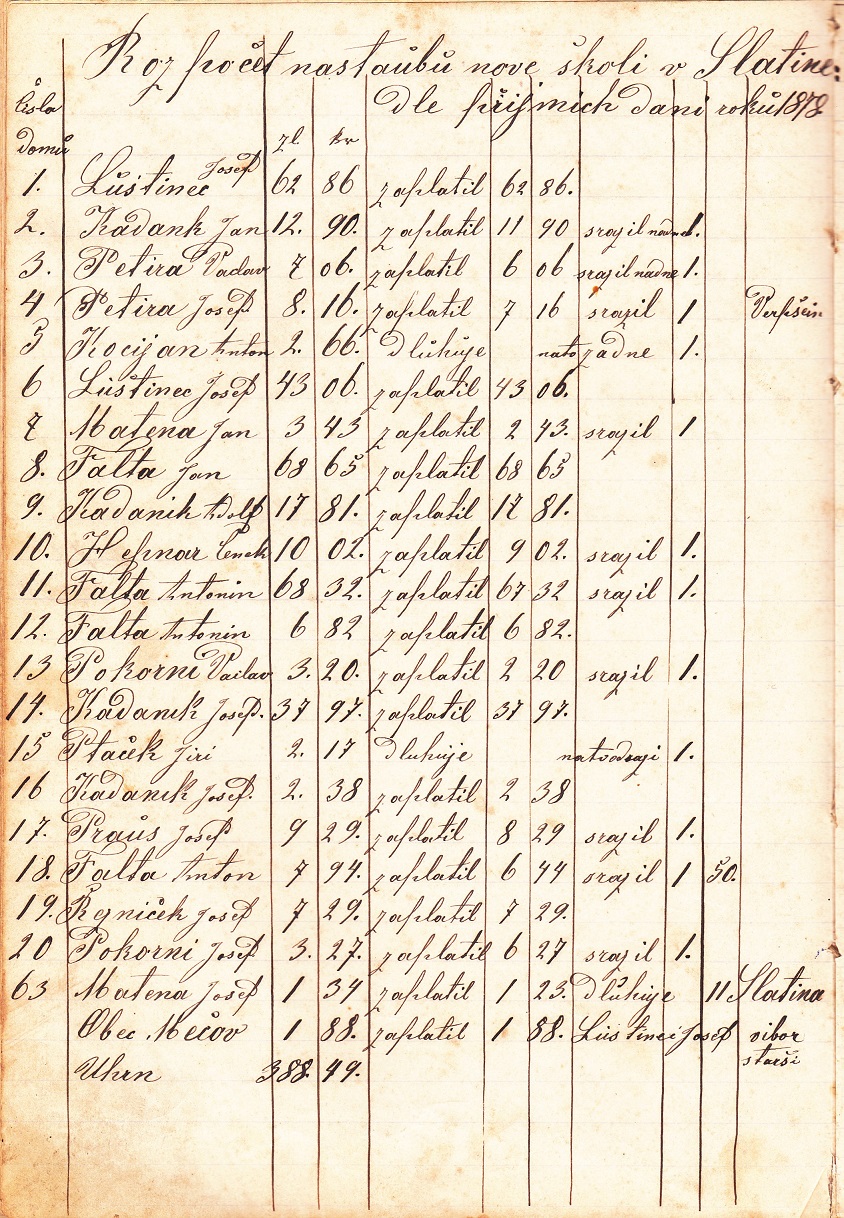 Rozpočet nastaubů nove školi v Slatine
dle přijmich dani roků 1878.
Čisla
domů zl kr
1. Lůstinec Josef 62 86 zaplatil 62 86.
2. Kadank Jan 12. 90. zaplatil 11 90 srazil nadne 1.
3. Petira Vaclav 7 06. zaplatil 6 06 srazil nadne 1.
4 Petira Josef. 8. 16. zaplatil 7 16 srazil 1
5 Kocijan Anton 2. 66. Dlůhůje nato žadne 1.
6 Lůstinec Josef 43 06. zaplatil 43 06.
7 Matena Jan 3 43 zaplatil 2 43. srazil 1
8. Falta Jan 68 65 zaplatil 68 65
9. Kadanik Adolf 17 81. zaplatil 17 81.
10. Hepnar Čenek 10 02. zaplatil 9 02. srazil 1.
11. Falta Antonin 68 32. zaplatil 67 32 srazil 1.
12. Falta Antonin 6 82 zaplatil 6 82.
13 Pokorni Vaclav 3. 20. zaplatil 2 20 srazil 1.
14. Kadanik Josef. 37 97. zaplatil 37 97.
15 Ptaček Jiri 2. 17 Dluhuje 1.
16 Kadanik Josef. 2. 38 zaplatil 2 38
17. Praůs Josef 9 29. zaplatil 8 29 srazil 1.
18. Falta Anton 7 94. zaplatil 6 44 srazil 1 50.
19. Řezniček Josef 7 29. zaplatil 7 29.
20 Pokorni Josef 3. 27. zaplatil 6 27 srazil 1.
63 Matena Josef 1 34 zaplatil 1 23. Dlůhuje 11 Slatina
Obec Mečov 1 88. zaplatil 1 88. Lůstinec Josef vibor
starši
Uhrn 388. 49.